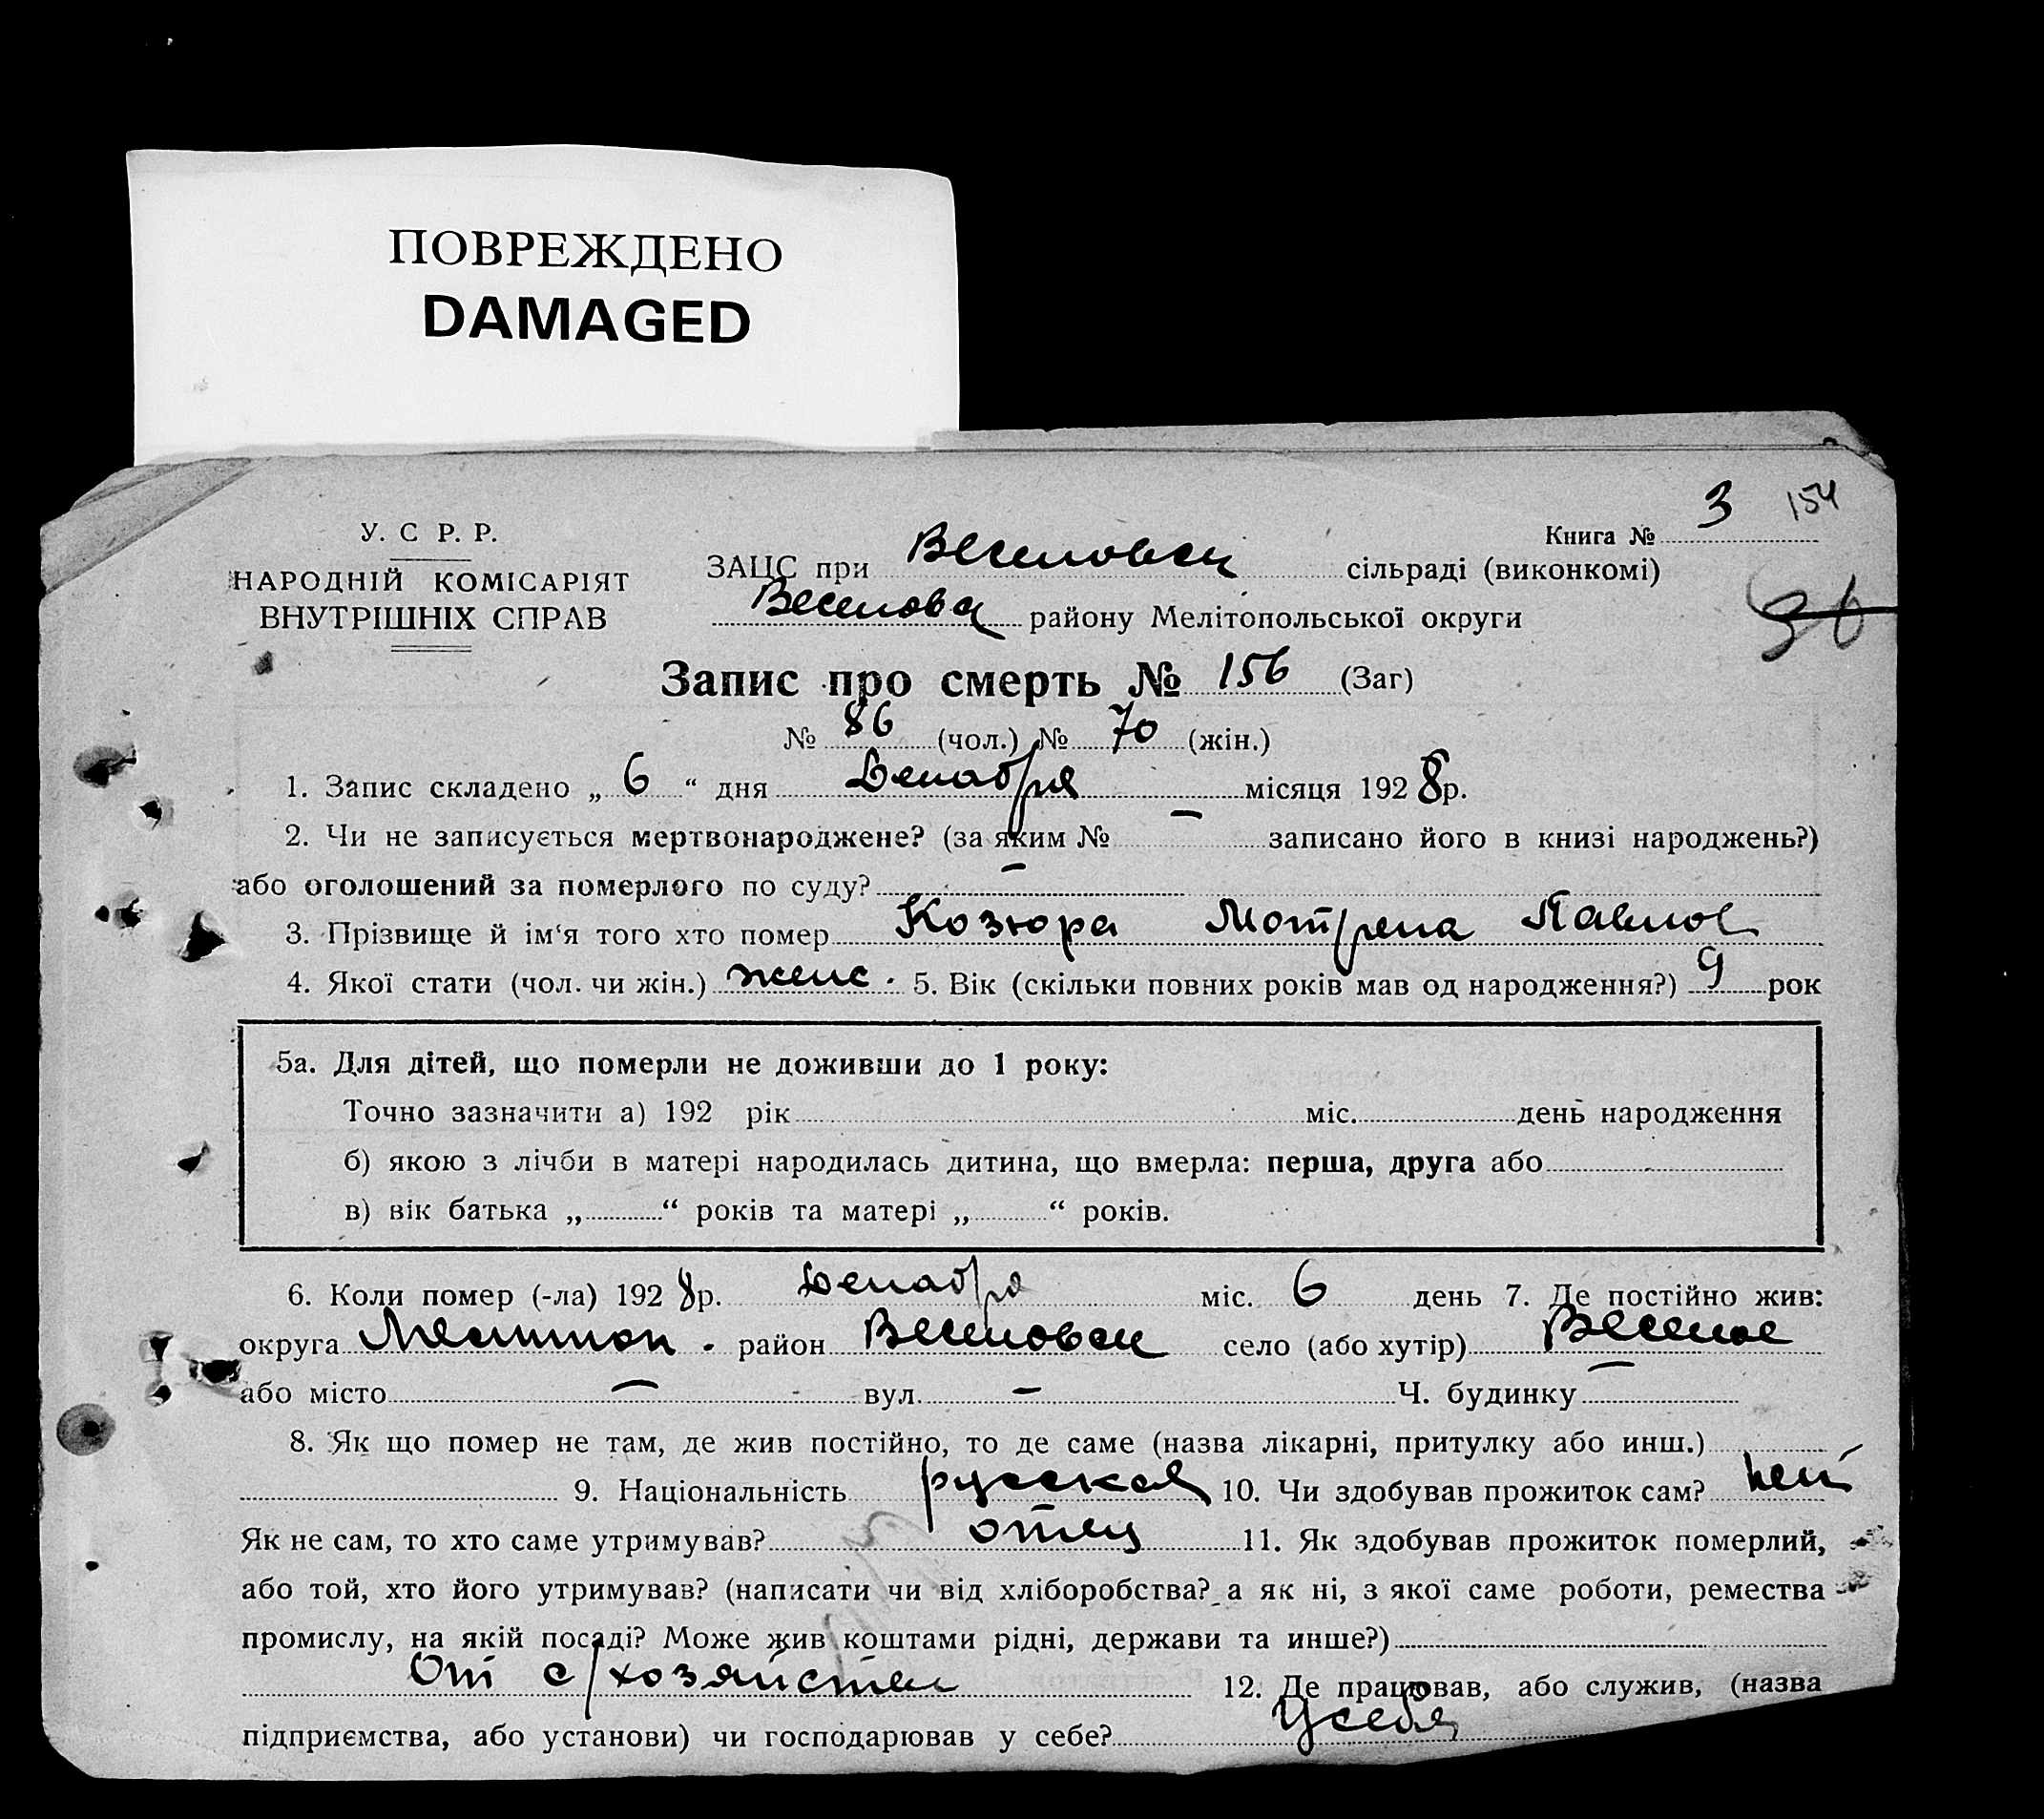 ПОВРЕЖДЕНО
DAMAGED
3 154
У. С Р. Р.
Книга №
НАРОДНІЙ КОМІСАРІЯТ
ВНУТРІШНІХ СПРАВ
ЗАЦС при Веселовск сільраді (виконкомі)
Веселовск району Мелітопольської округи
Запис про смерть № 156 (Заг)
№ 86 (чол.) № 70 (жін.)
1. Запис складено „ 6 “ дня Декабря місяця 1928 р.
2. Чи не записується мертвонароджене? (за яким № – записано його в книзі народжень?)
або оголошений за померлого по суду? –
3. Прізвище й ім‘я того хто помер Козюра Мотрена Павлов
4. Якої стати (чол. чи жін.) женс. 5. Вік (скільки повних років мав од народження?) 9 рок
5а. Для дітей, що померли не доживши до 1 року:
Точно зазначити а) 192 рік міс. день народження
б) якою з лічби в матері народилась дитина, що вмерла: перша, друга або
в) вік батька „ “ років та матері „ “ років.
6. Коли помер (-ла) 1928 р. Декабря міс. 6 день 7. Де постійно жив:
округа Мелитоп. район Веселовск село (або хутір) Веселое
або місто – вул. – Ч. будинку –
8. Як що помер не там, де жив постійно, то де саме (назва лікарні, притулку або инш.) –
9. Національність русская 10. Чи здобував прожиток сам? нет
Як не сам, то хто саме утримував? отец 11. Як здобував прожиток померлий,
або той, хто його утримував? (написати чи від хліборобства? а як ні, з якої саме роботи, ремества
промислу, на якій посаді? Може жив коштами рідні, держави та инше?)
От с/хозяйства 12. Де працював, або служив, (назва
підприємства, або установи) чи господарював у себе? У себя